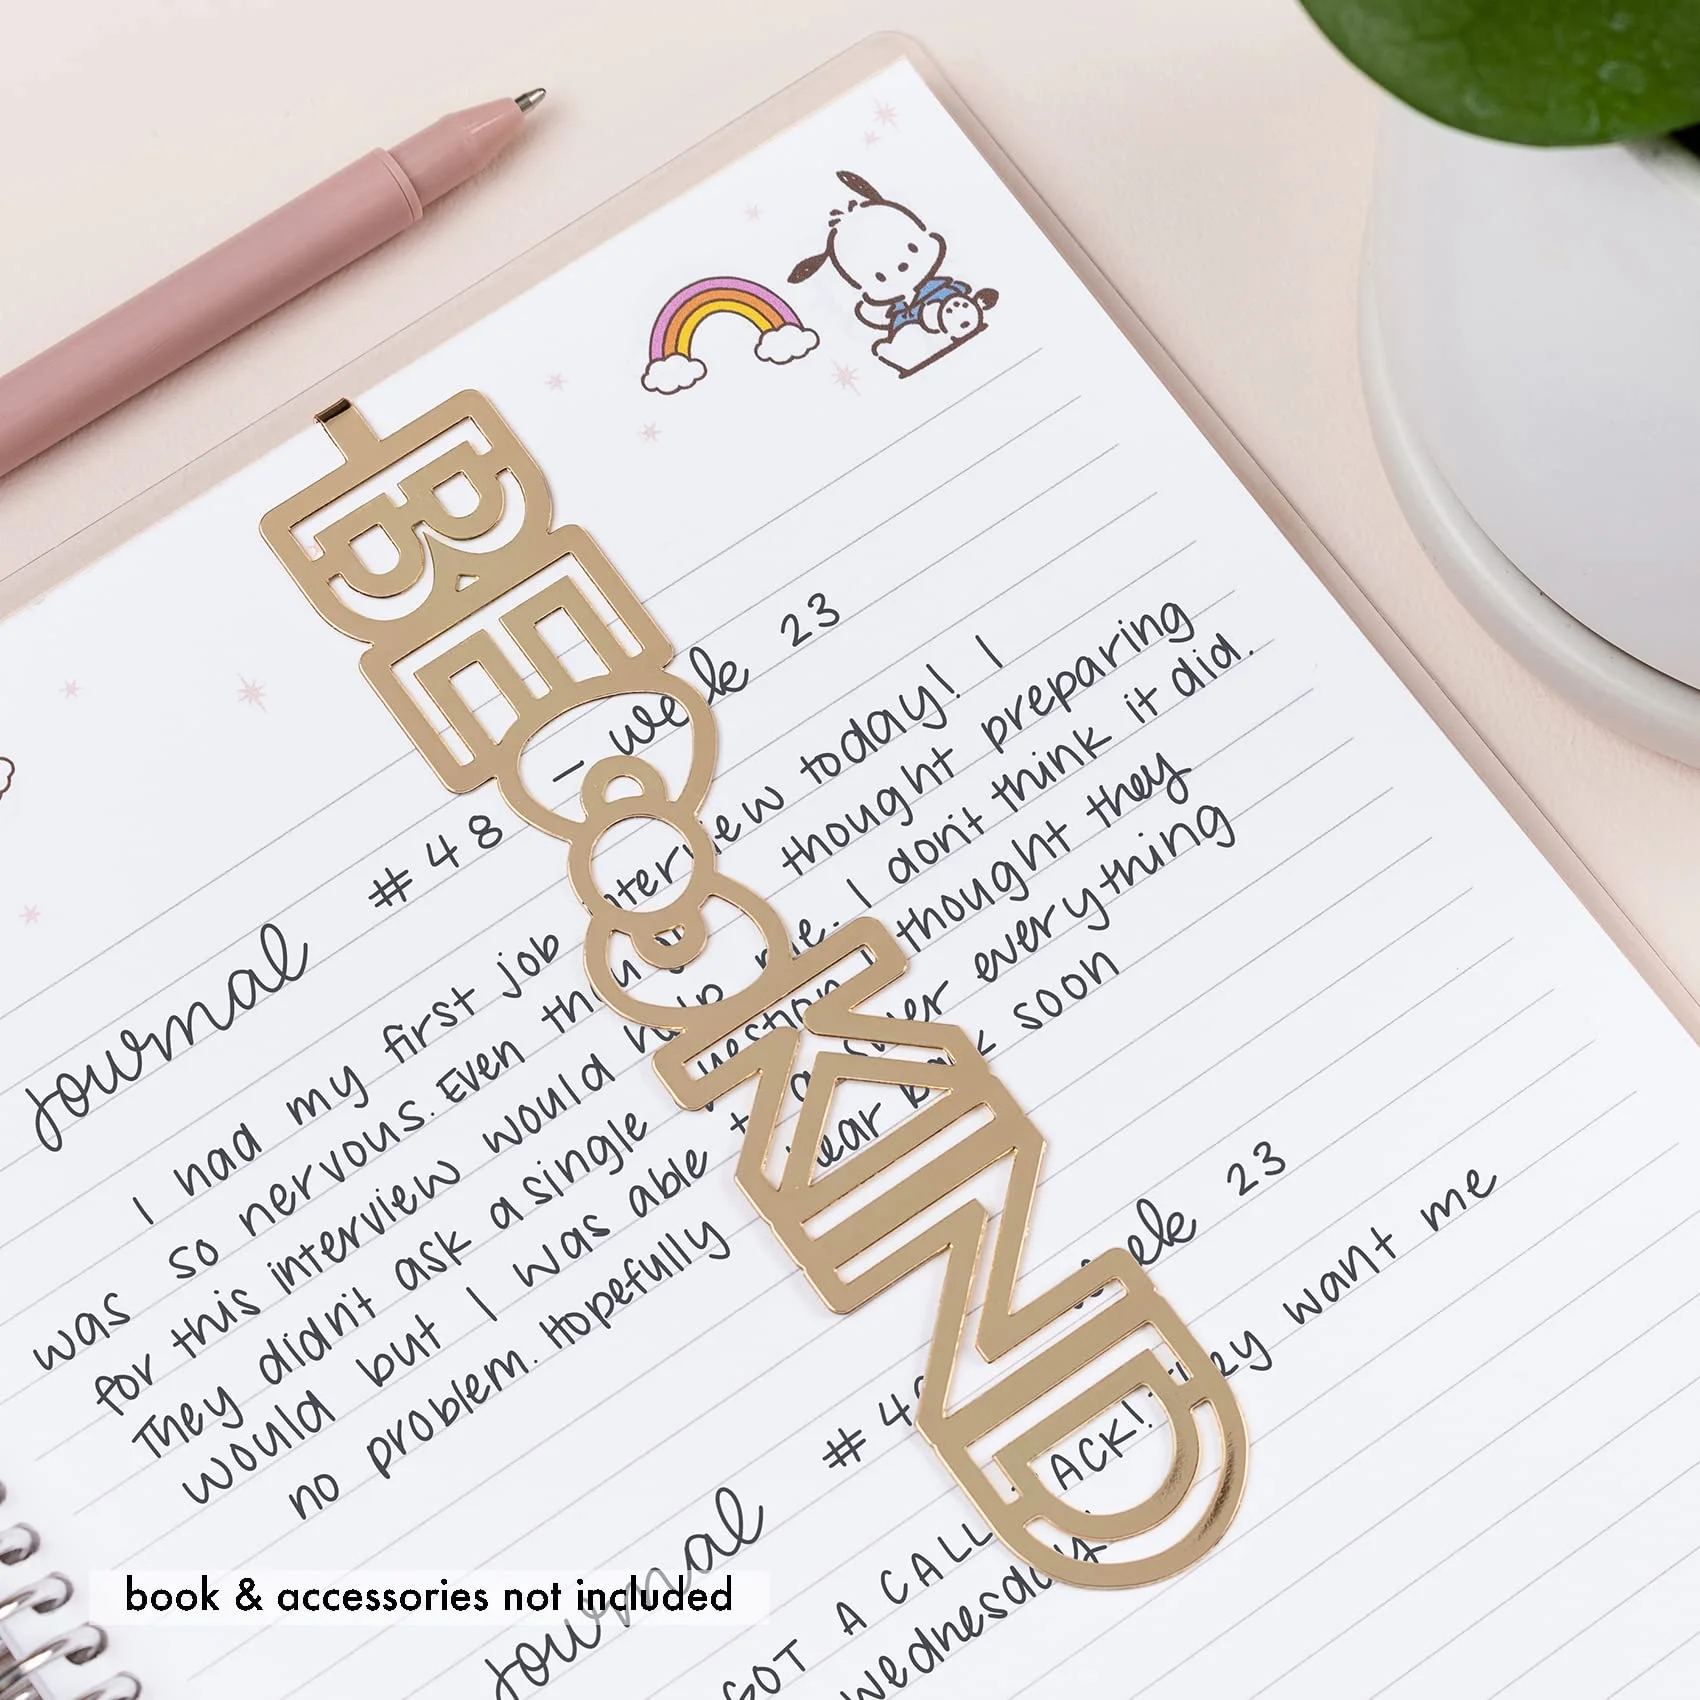 BE KIND
Journal #48 – week 23
I had my first job interview today! I
was so nervous. Even thought preparing
for this interview would help me. I don't think it did.
They didn't ask a single question I thought they
would but I was able to answer everything
no problem. Hopefully hear back soon
Journal week 23
GOT A CALL BACK! They want me
Wednesday
book & accessories not included